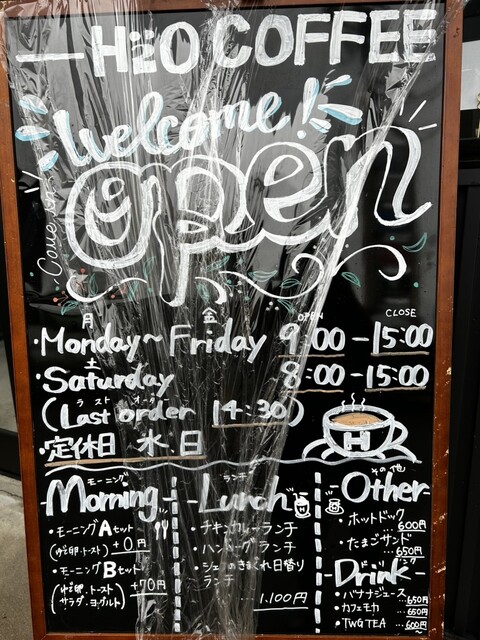 H2O COFFEE
Welcome!
Come in
open
月 金 OPEN CLOSE
・Monday~Friday 9:00-15:00
土
・Saturday 8:00-15:00
ラストオーダー
(Last order 14:30)
・定休日 水.日
モーニング
-Morning-
・モーニングAセット
(ゆで卵・トースト) +0円
・モーニングBセット
(ゆで卵.トースト
サラダ.ヨーグルト) +70円
ランチ
-Lunch
・チキンカレーランチ
・ハンバーグランチ
・シェフのきまぐれ日替り
ランチ
...1,100円
その他
-Other-
・ホットドック
...600円
・たまごサンド
...650円
-Drink-
・バナナジュース...650円
・カフェモカ ...650円
・TWG TEA ...600円~
H